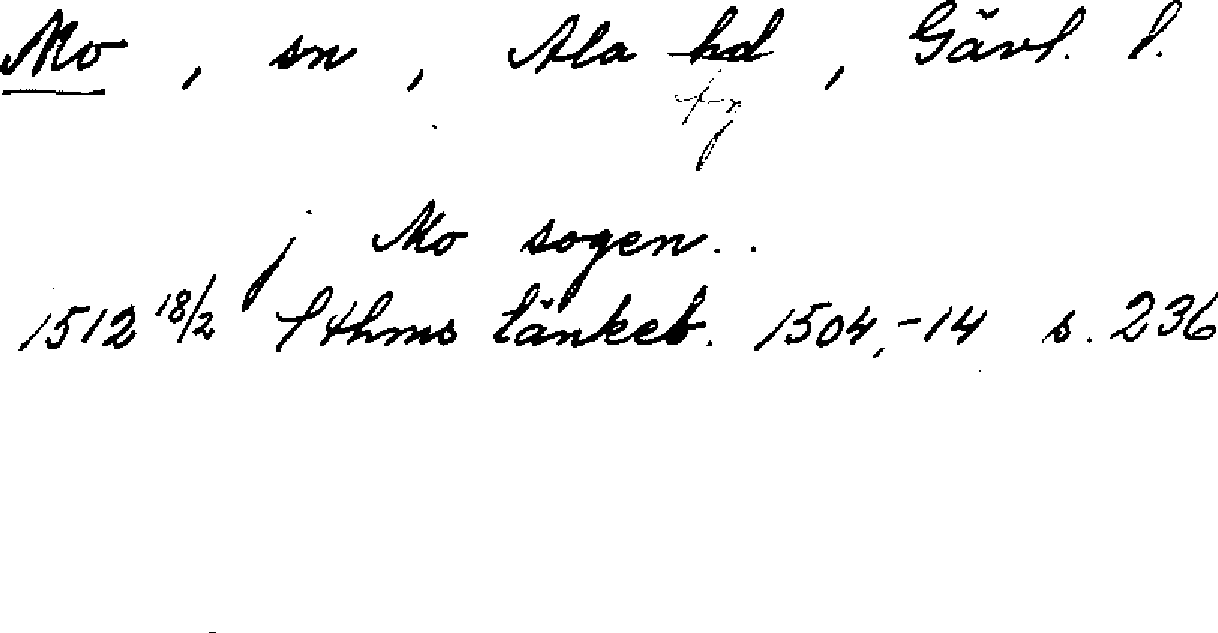 Mo, sn, Ala hd, Gävl. l.
j Mo sogen..
1512 18/2 Sthms tänkeb. 1504,-14 s. 236